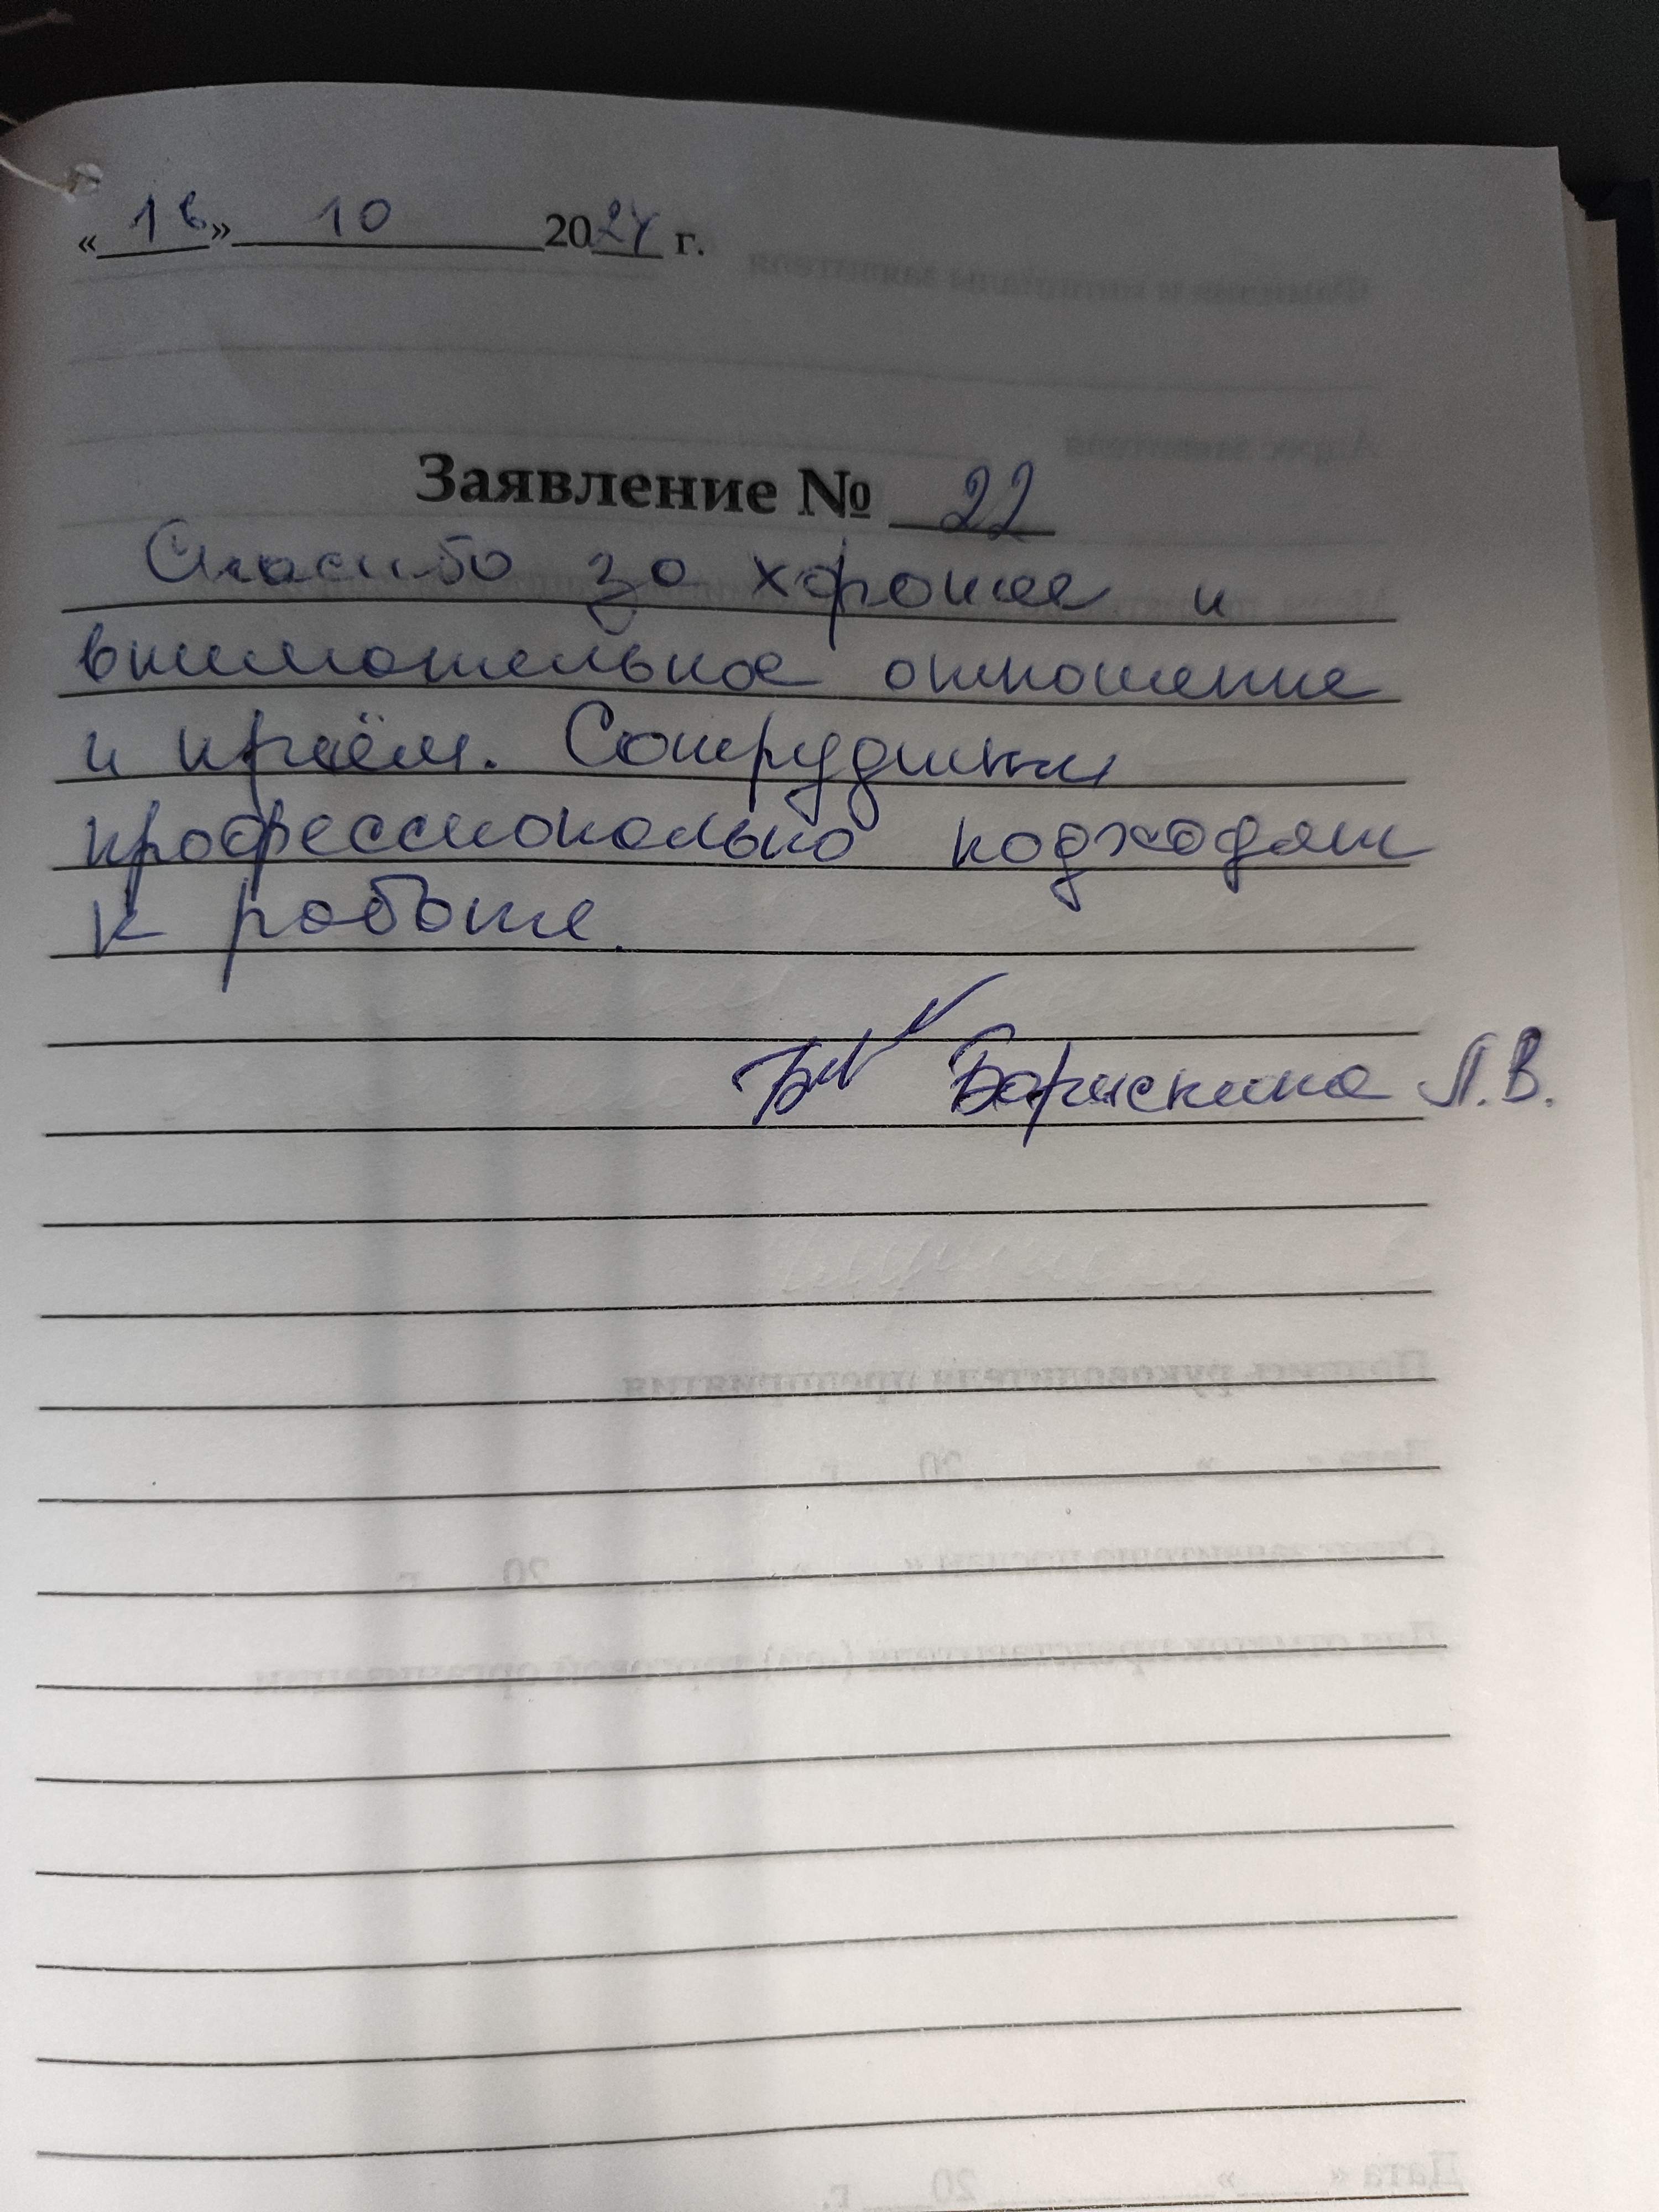 «16» 10 2024 г.
Заявление № 22
Спасибо за хорошее и
внимательное отношение
и приём. Сотрудники
профессионально подходят
к работе.
Барыскина Л.В.